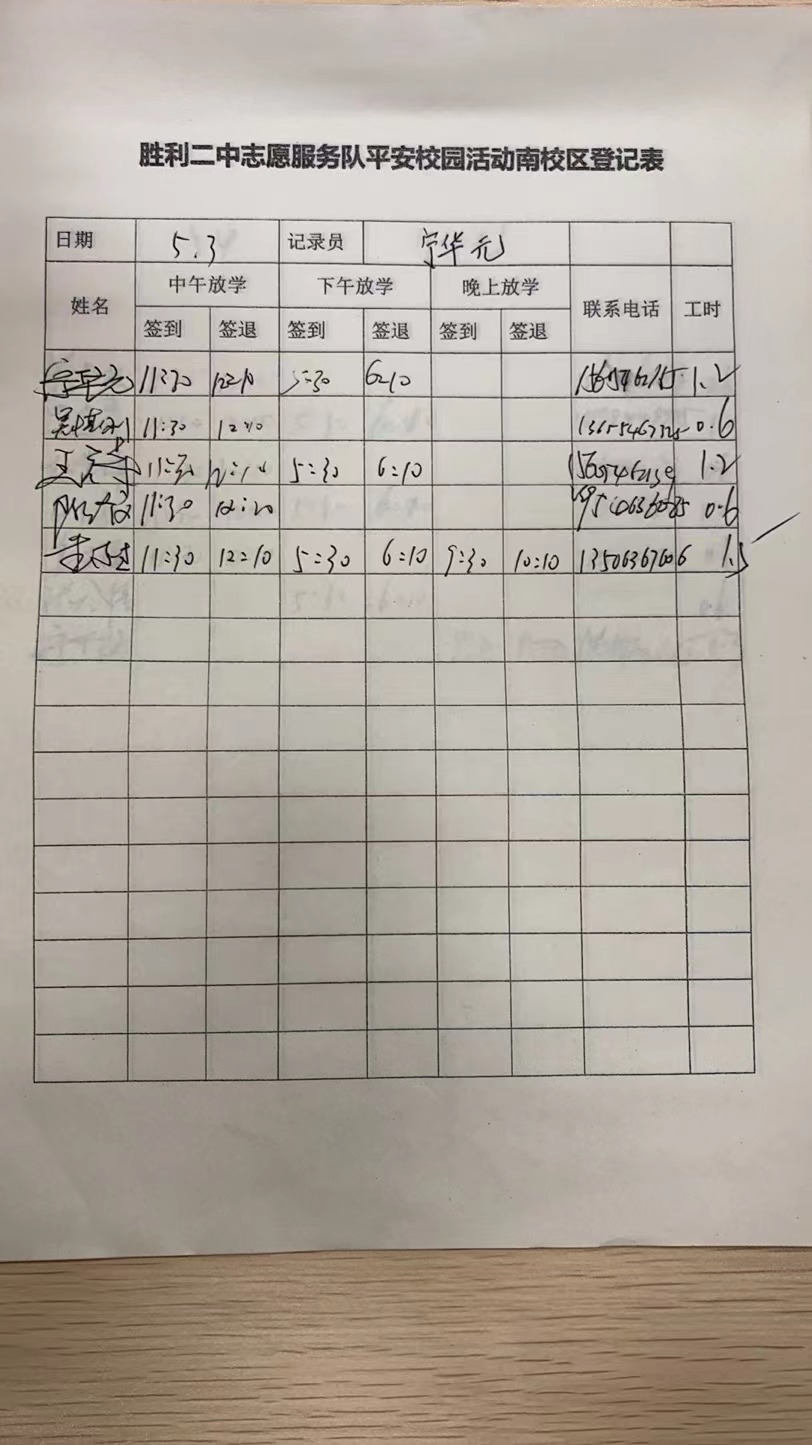 胜利二中志愿服务队平安校园活动南校区登记表
日期 5.3 记录员 宁华元
姓名 中午放学 下午放学 晚上放学 联系电话 工时
签到 签退 签到 签退 签到 签退
11:30 12:10 5:30 6:10 1.2
11:30 12:10 0.6
11:30 12:10 5:30 6:10 1.2
11:30 12:20 0.6
11:30 12:10 5:30 6:10 9:30 10:10 13506367606 1.5